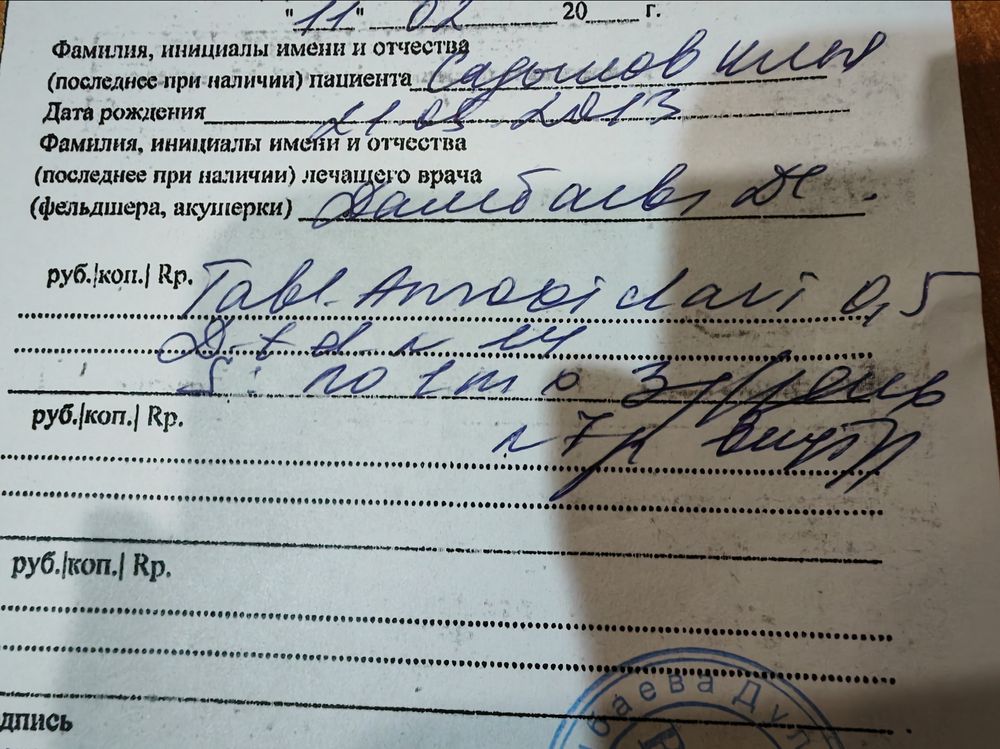 "11" 02 20 г.
Фамилия, инициалы имени и отчества
(последнее при наличии) пациента Садыков Илья
Дата рождения 21 03 2013
Фамилия, инициалы имени и отчества
(последнее при наличии) лечащего врача
(фельдшера, акушерки)
руб.|коп.| Rp. Tabl. Amoxiclavi 0,5
D.t.d. N 14
S: по 1 т
руб./коп./ Rp. внутр
руб.|коп.| Rp.
баева Дул
дпись